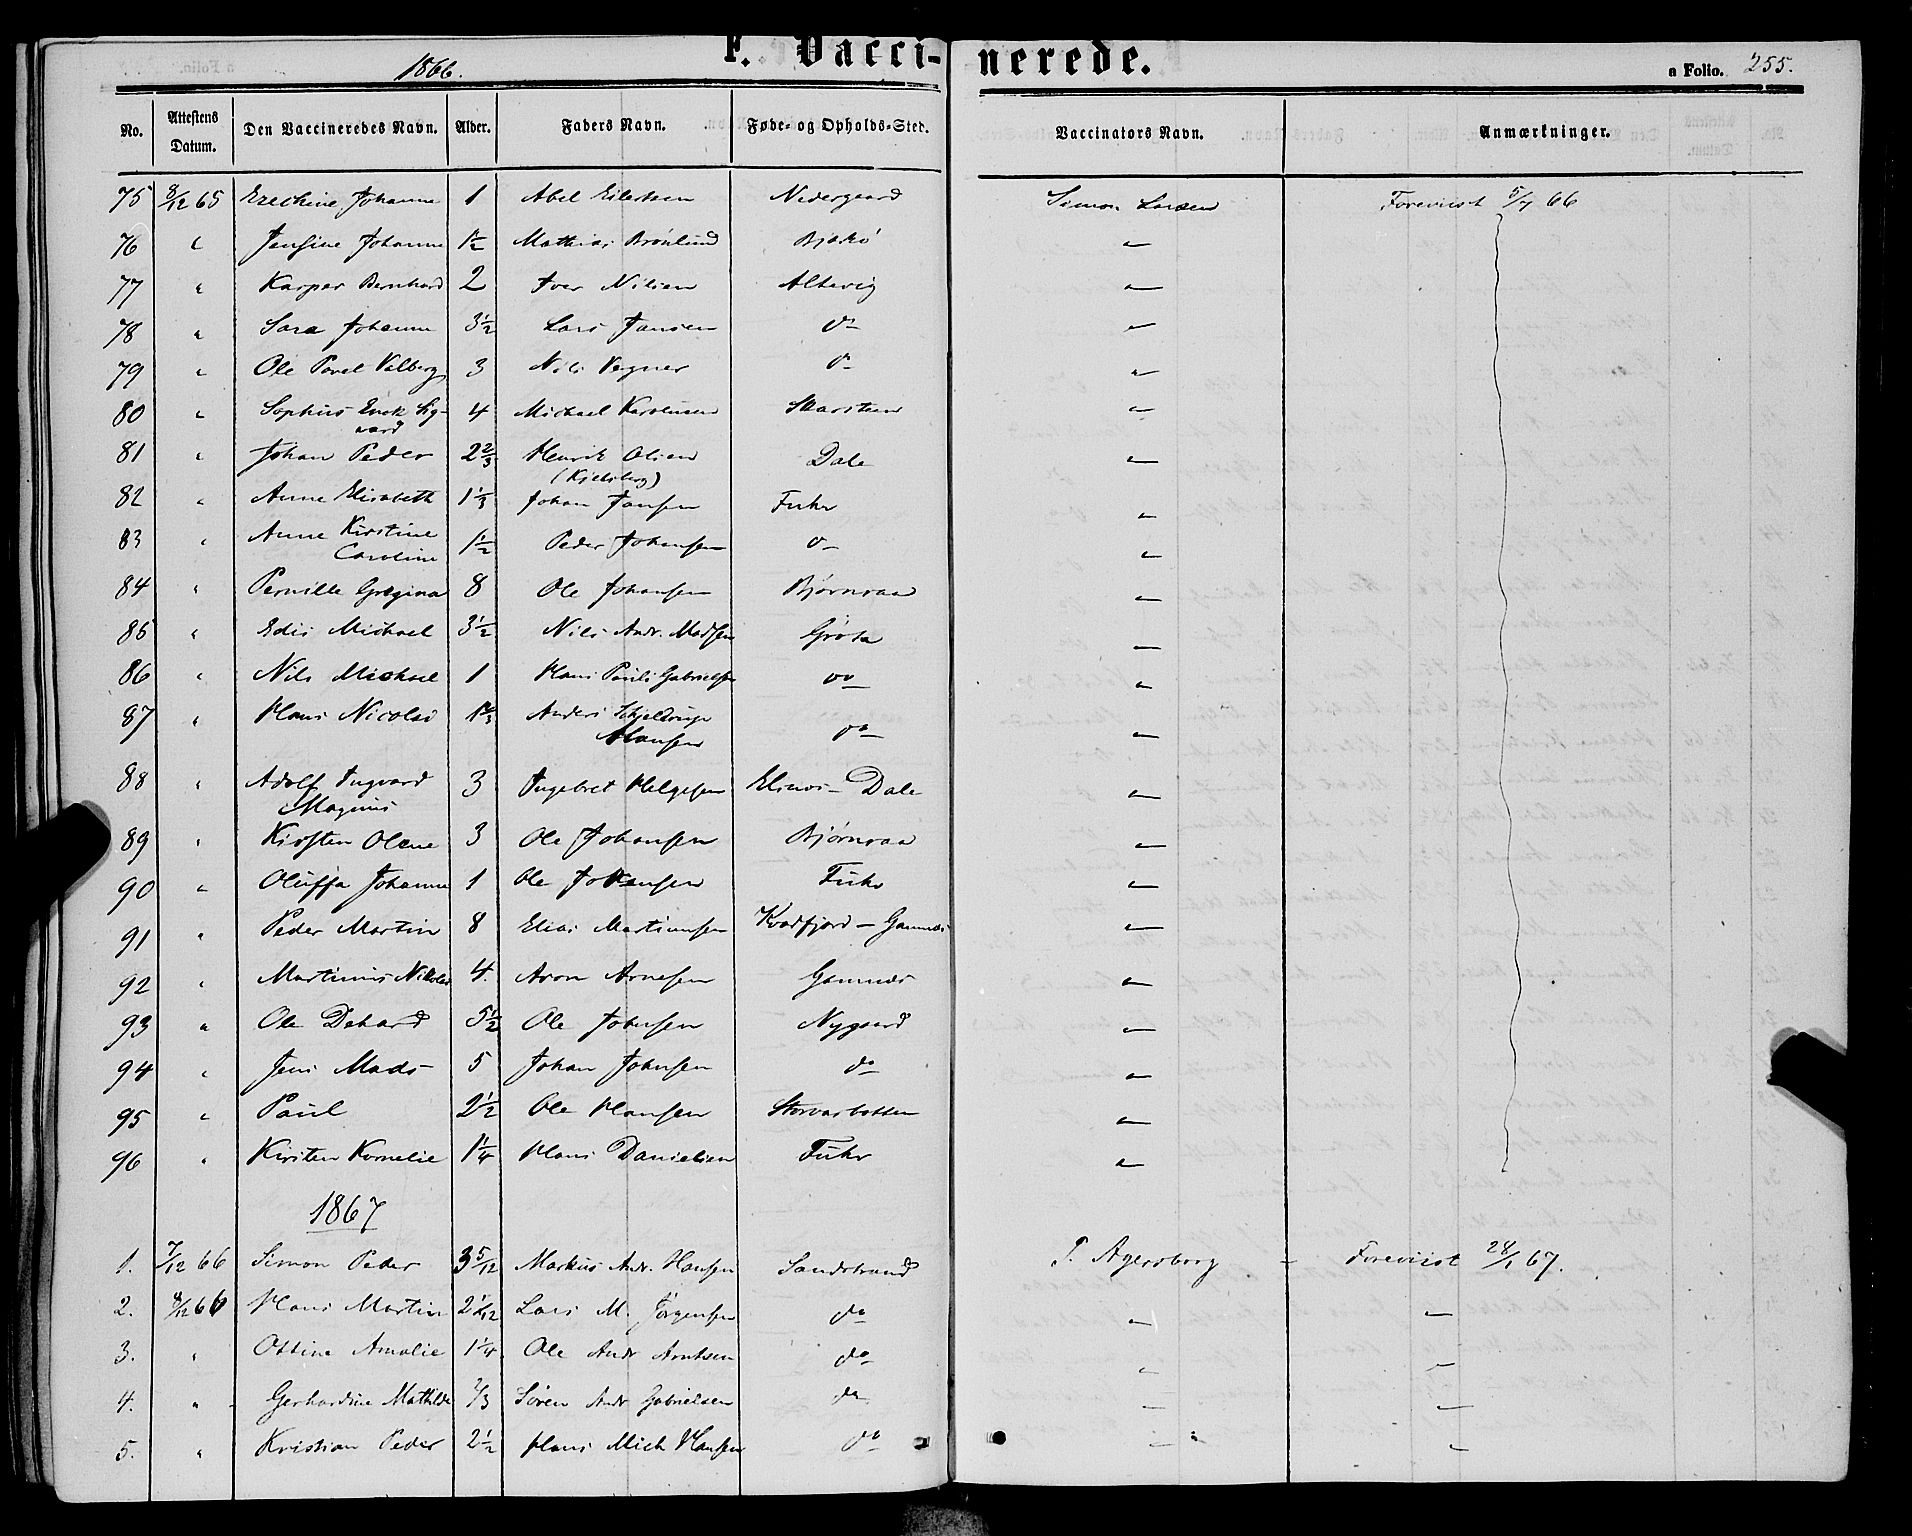 1866. F. Vaccinerede. a Folio. 255.
No. Attestens Datum. Den Vaccineredes Navn. Alder. Faders Navn. Føde- og Opholds-Sted. Vaccinators Navn. Anmærkninger.
75 8/12 65 Esechine Johanne 1 Abel Eilertsen Nedergaard Simon Larsen Foreviist 5/7 66
76 " Jensine Johanne 1½ Mathias Brönlund Bjarkö "
77 " Kasper Bernhard 2 Iver Nilsen Altevig "
78 " Sara Johanne 3½ Lars Jansen do "
79 " Ole Parel Valberg 3 Nils Vegner do "
80 " Sophus Enok Sig- 4 Michael Karolusen Skarsteen "
vard
81 " Johan Peder 2⅔ Henrik Olsen Dale "
(Kjelsberg)
82 " Anne Elisabeth 1⅓ Johan Jansen Fuhr "
83 " Anne Kirstine 1½ Peder Johansen do "
Caroline
84 " Pernille Gregina 8 Ole Johansen Bjørnraa "
85 " Edis Michael 3½ Nils Andr. Madsen Grøta "
86 " Nils Michael 1 Hans Pauli Gabrielsen do "
87 " Hans Nicolai Anders Schjeldrup do "
Hansen
88 " Adolf Ingvard 3 Ingebret Helgesen Elvnes - Dale "
Magnus
89 " Kirsten Olene 3 Ole Johansen Bjørnraa "
90 " Oluffa Johanne 1 Ole Johansen Fuhr "
91 " Peder Martin 8 Elias Martinusen Kvædfjord - Gamnes "
92 " Martinus Nikolai 4. Aron Arnesen Gamnes "
93 " Ole Dehard 5½ Ole Johnsen Nygaard "
94 " Jens Mads 5 Johan Johnsen do "
95 " Paul 2½ Ole Hansen Storvasbotten "
96 " Kirsten Kornelie 1¼ Hans Danielsen Fuhr "
1867
1. 7/12 66 Simon Peder 3 5/12 Markus Andr. Hansen Sandstrand P. Agersborg - Foreviist 28/1 67.
2. 8/12 66 Hans Martin 2 1/12 Lars M. Jörgensen do " "
3. " Ottine Amalie 1¼ Ole Andr Arntsen do " "
4. " Gerhardine Mathilde ⅔ Sören Andr Gabrielsen do " "
5. " Kristian Peder 2½ Hans Mich Hansen do " "